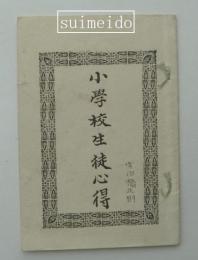 suimeido
小學校生徒心得